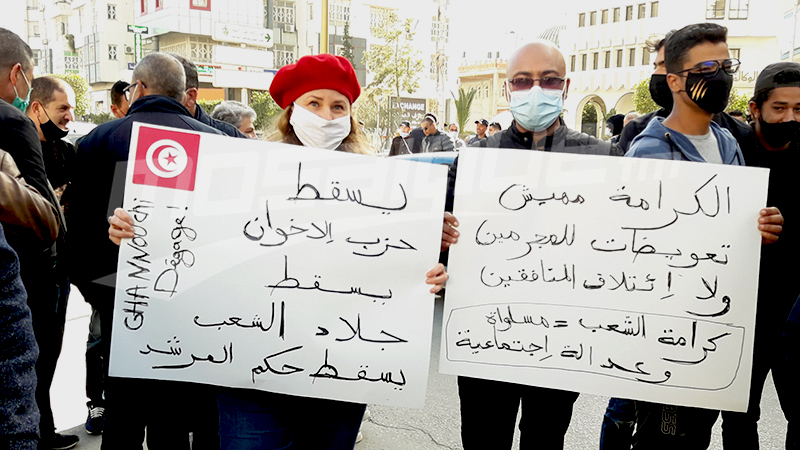 GHANNOUCHI
Dégage!
يسقط
حزب الاخوان
يسقط
جلاد الشعب
يسقط حكم المرشد
الكرامة مهيش
تعويضات للمجرمين
ولا إئتلاف المنافقين
كرامة الشعب = مساواة
وعدالة إجتماعية
EXCHANGE